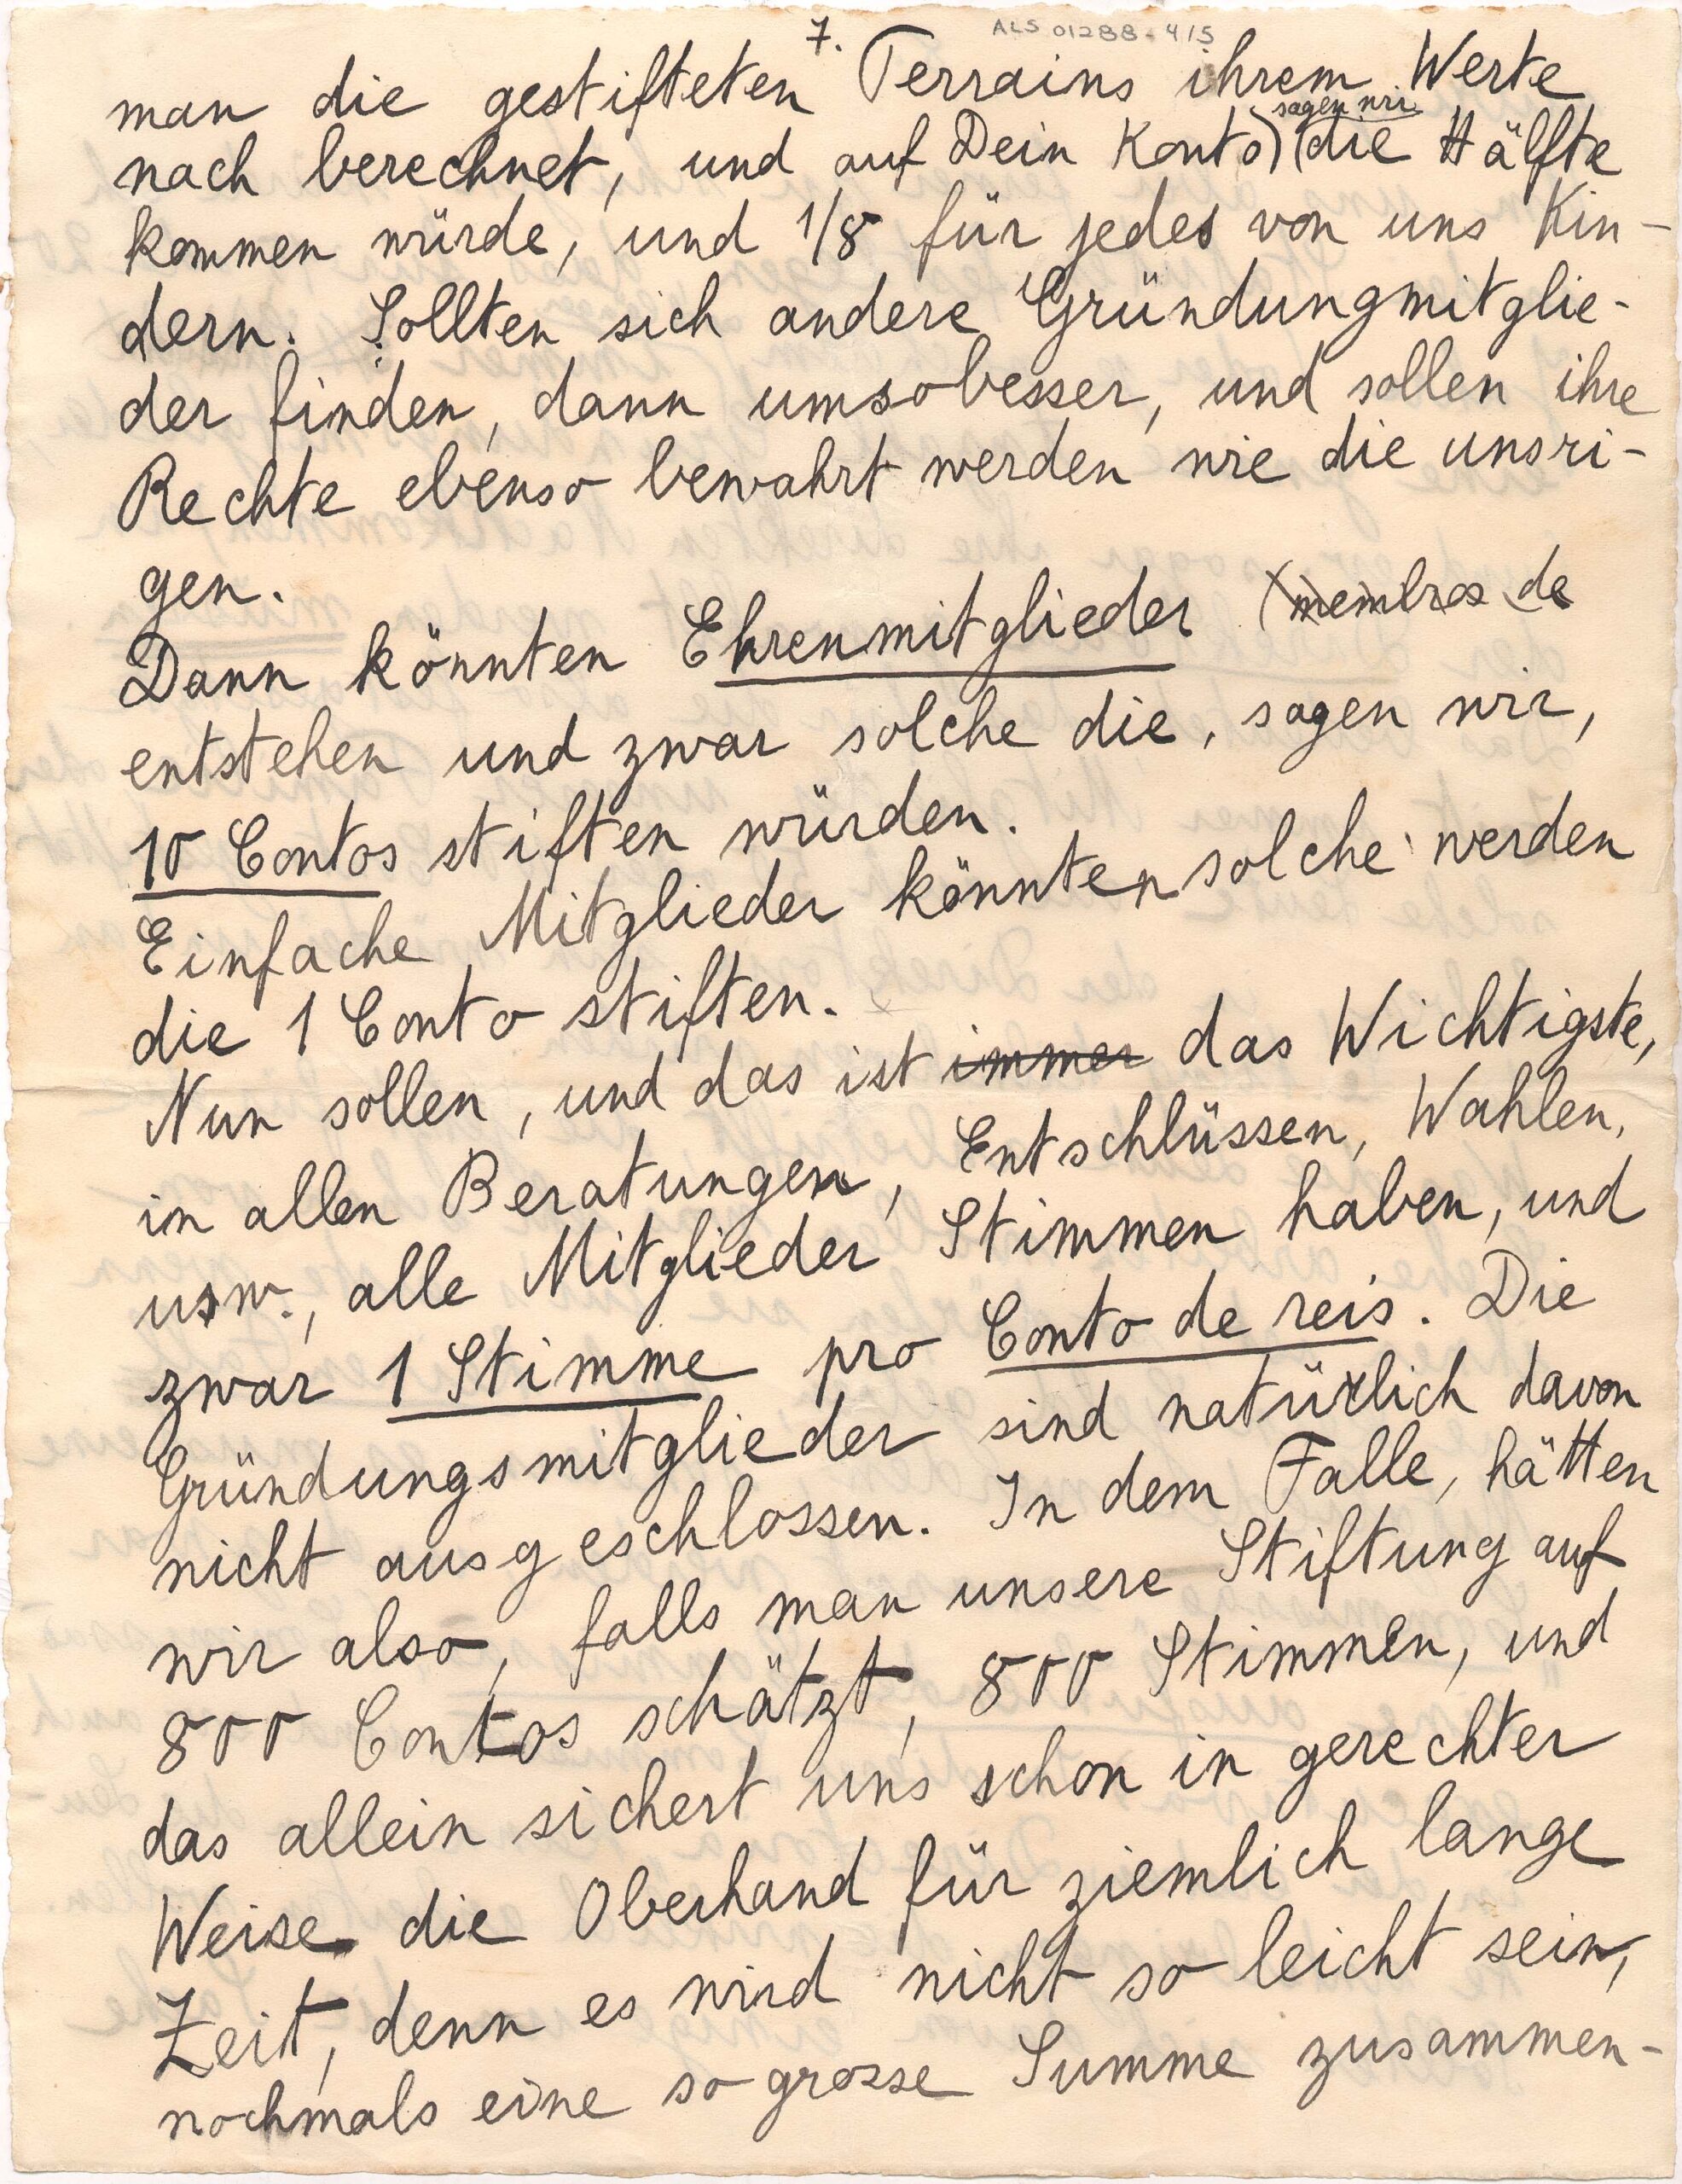 ALS 01288-4/5
7.
man die gestifteten Terrains ihrem Werte
sagen wir
nach berechnet, und auf Dein Konto) (die Hälfte
kommen würde, und 1/8 für jedes von uns Kin-
dern. Sollten sich andere Gründungmitglie-
der finden, dann umsobesser, und sollen ihre
Rechte ebenso bewahrt werden wie die unsri-
gen.
Dann könnten Ehrenmitglieder (membros de
entstehen und zwar solche die, sagen wir,
10 Contos stiften würden.
Einfache Mitglieder könnten solche werden
die 1 Conto stiften.
Nun sollen, und das ist immer das Wichtigste,
in allen Beratungen, Entschlüssen, Wahlen,
usw., alle Mitglieder Stimmen haben, und
zwar 1 Stimme pro Conto de reis. Die
Gründungsmitglieder sind natürlich davon
nicht ausgeschlossen. In dem Falle, hätten
wir also, falls man unsere Stiftung auf
800 Contos schätzt, 800 Stimmen, und
das allein sichert uns schon in gerechter
Weise die Oberhand für ziemlich lange
Zeit, denn es wird nicht so leicht sein,
nochmals eine so grosse Summe zusammen-